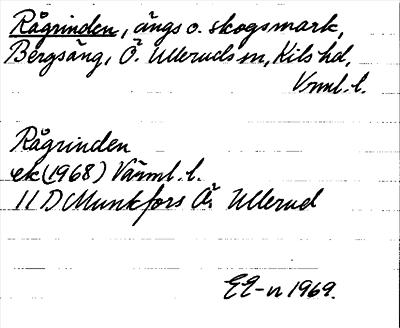 Rågrinden, ängs o. skogsmark,
Bergsäng, Ö. Ulleruds sn, Kils hd,
Vrml. l.
Rågrinden
ek (1968) Värml. l.
11 D Munkfors Ö. Ullerud
EE-n 1969.